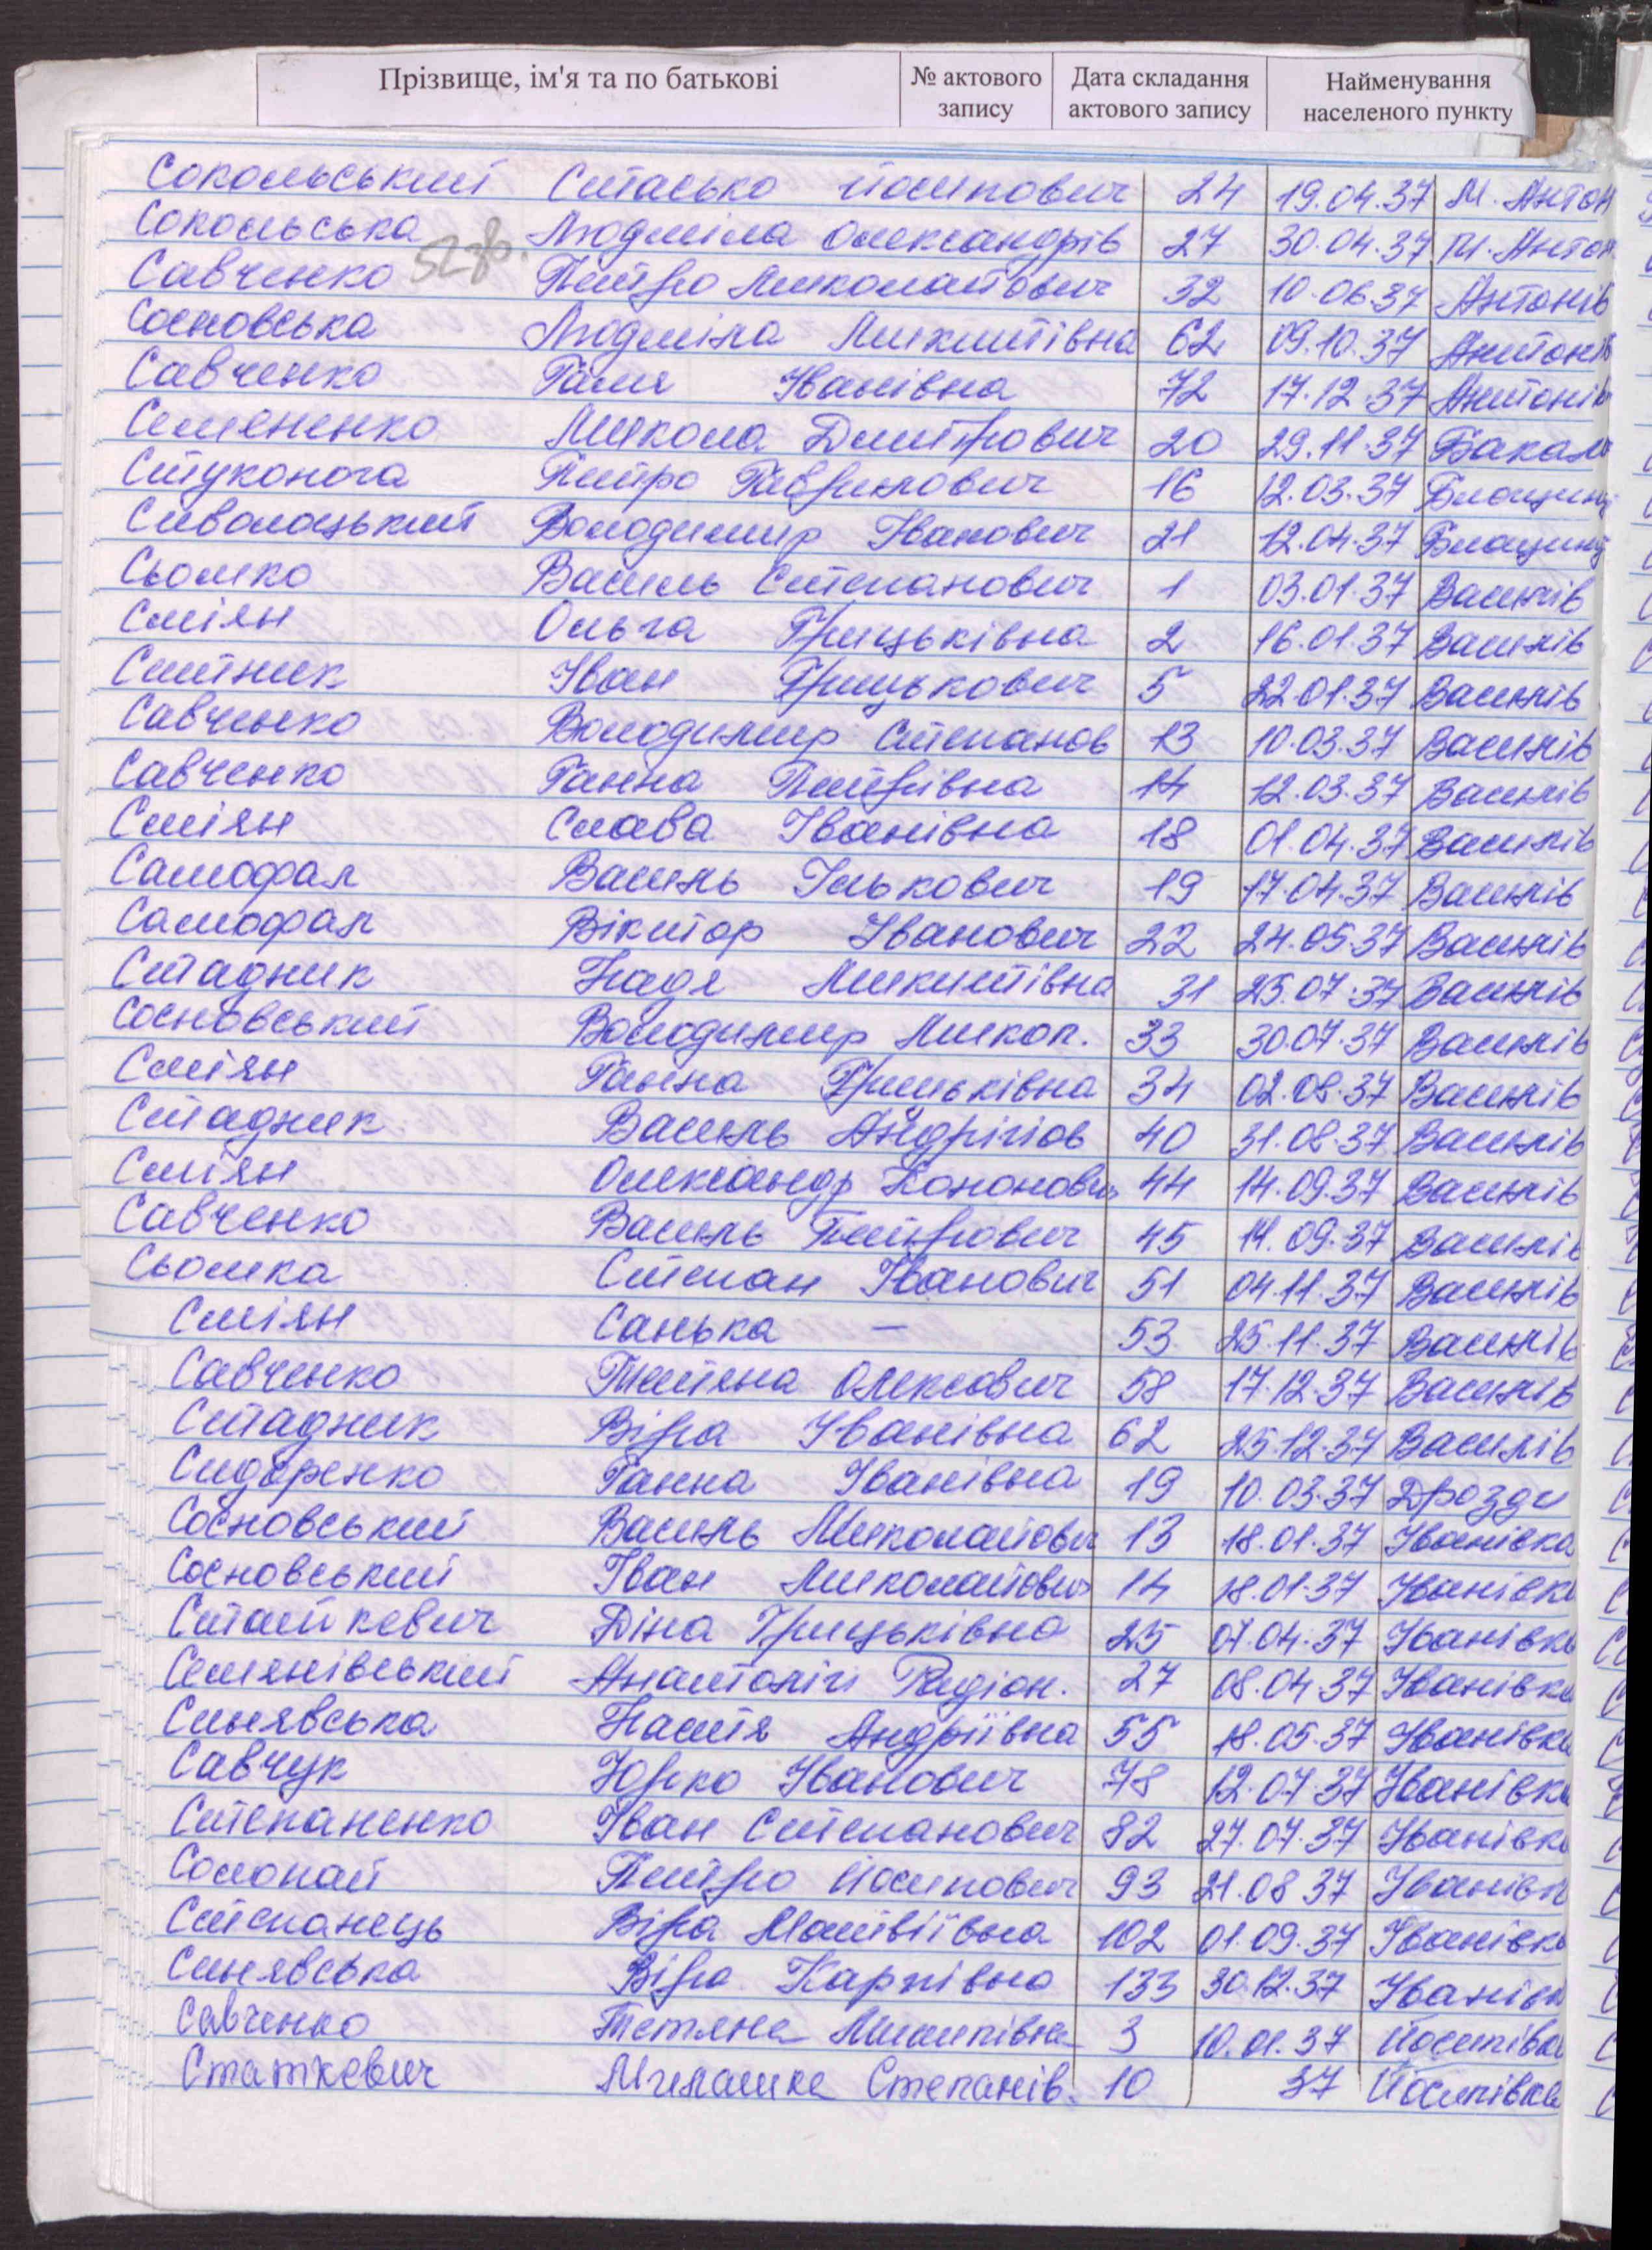 Прізвище, ім'я та по батькові № актового запису Дата складання актового запису Найменування населеного пункту
Сокольський Стасько Йосипович 24 19.04.37 М. Антон
Сокольська Людміла Олександрів 27 30.04.37 М. Антон
Савченко Петро Миколайович 32 10.06.37 Антонів
Сосновська Людміла Микитівна 62 09.10.37 Антонів
Савченко Галя Іванівна 72 17.12.37 Антонів
Семененко Микола Дмитрович 20 29.11.37 Бакали
Стуконога Петро Гаврилович 16 12.03.37 Блощинц
Сиволоцький Володимир Іванович 21 12.04.37 Блощинц
Сьомко Василь Степанович 1 03.01.37 Василів
Сміян Ольга Грицьківна 2 16.01.37 Василів
Ситник Іван Грицькович 5 22.01.37 Василів
Савченко Володимир Степанов 13 10.03.37 Василів
Савченко Ганна Петрівна 14 12.03.37 Василів
Сміян Слава Іванівна 18 01.04.37 Василів
Самофал Василь Ількович 19 17.04.37 Василів
Самофал Віктор Іванович 22 24.05.37 Василів
Стадник Надя Микитівна 31 25.07.37 Василів
Сосновський Володимир Микол. 33 30.07.37 Василів
Сміян Ганна Грицьківна 34 02.08.37 Василів
Стадник Василь Андрійов 40 31.08.37 Василів
Сміян Олександр Кононович 44 14.09.37 Василів
Савченко Василь Петрович 45 14.09.37 Василів
Сьомка Степан Іванович 51 04.11.37 Василів
Сміян Санька — 53 25.11.37 Василів
Савченко Тетяна Олексович 58 17.12.37 Василів
Стадник Віра Іванівна 62 25.12.37 Василів
Сидоренко Ганна Іванівна 19 10.03.37 Дрозди
Сосновський Василь Миколайович 13 18.01.37 Іванівка
Сосновський Іван Миколайович 14 18.01.37 Іванівка
Статкевич Діна Грицьківна 25 07.04.37 Іванівка
Семянівський Анатолій Радіон. 27 08.04.37 Іванівка
Синявська Настя Андріївна 55 18.05.37 Іванівка
Савчук Юрко Іванович 78 12.07.37 Іванівка
Степаненко Іван Степанович 82 27.07.37 Іванівка
Солопай Петро Йосипович 93 21.08 37 Іванівк
Степанець Віра Матвіївна 102 01.09.37 Іванівка
Синявська Віра Карпівна 133 30.12.37 Іванівк
Савченко Тетяна Пилипівна 3 10.01.37 Йосипівка
Статкевич Степанів. 10 37 Йосипівка